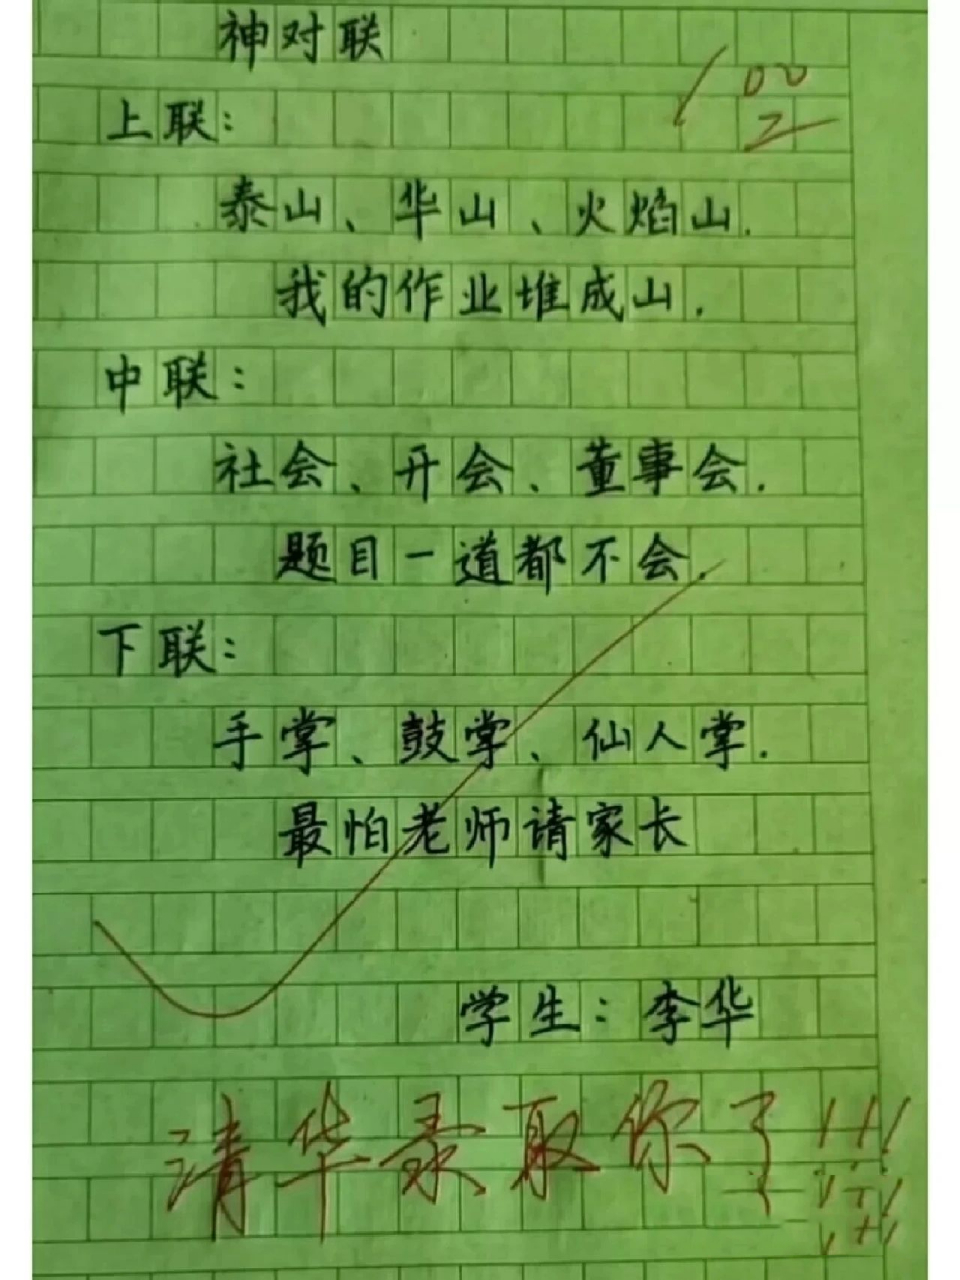 神对联
100
上联:
泰山、华山、火焰山.
我的作业堆成山.
中联:
社会、开会、董事会.
题目一道都不会.
下联:
手掌、鼓掌、仙人掌.
最怕老师请家长
学生:李华
清华录取你了!!!